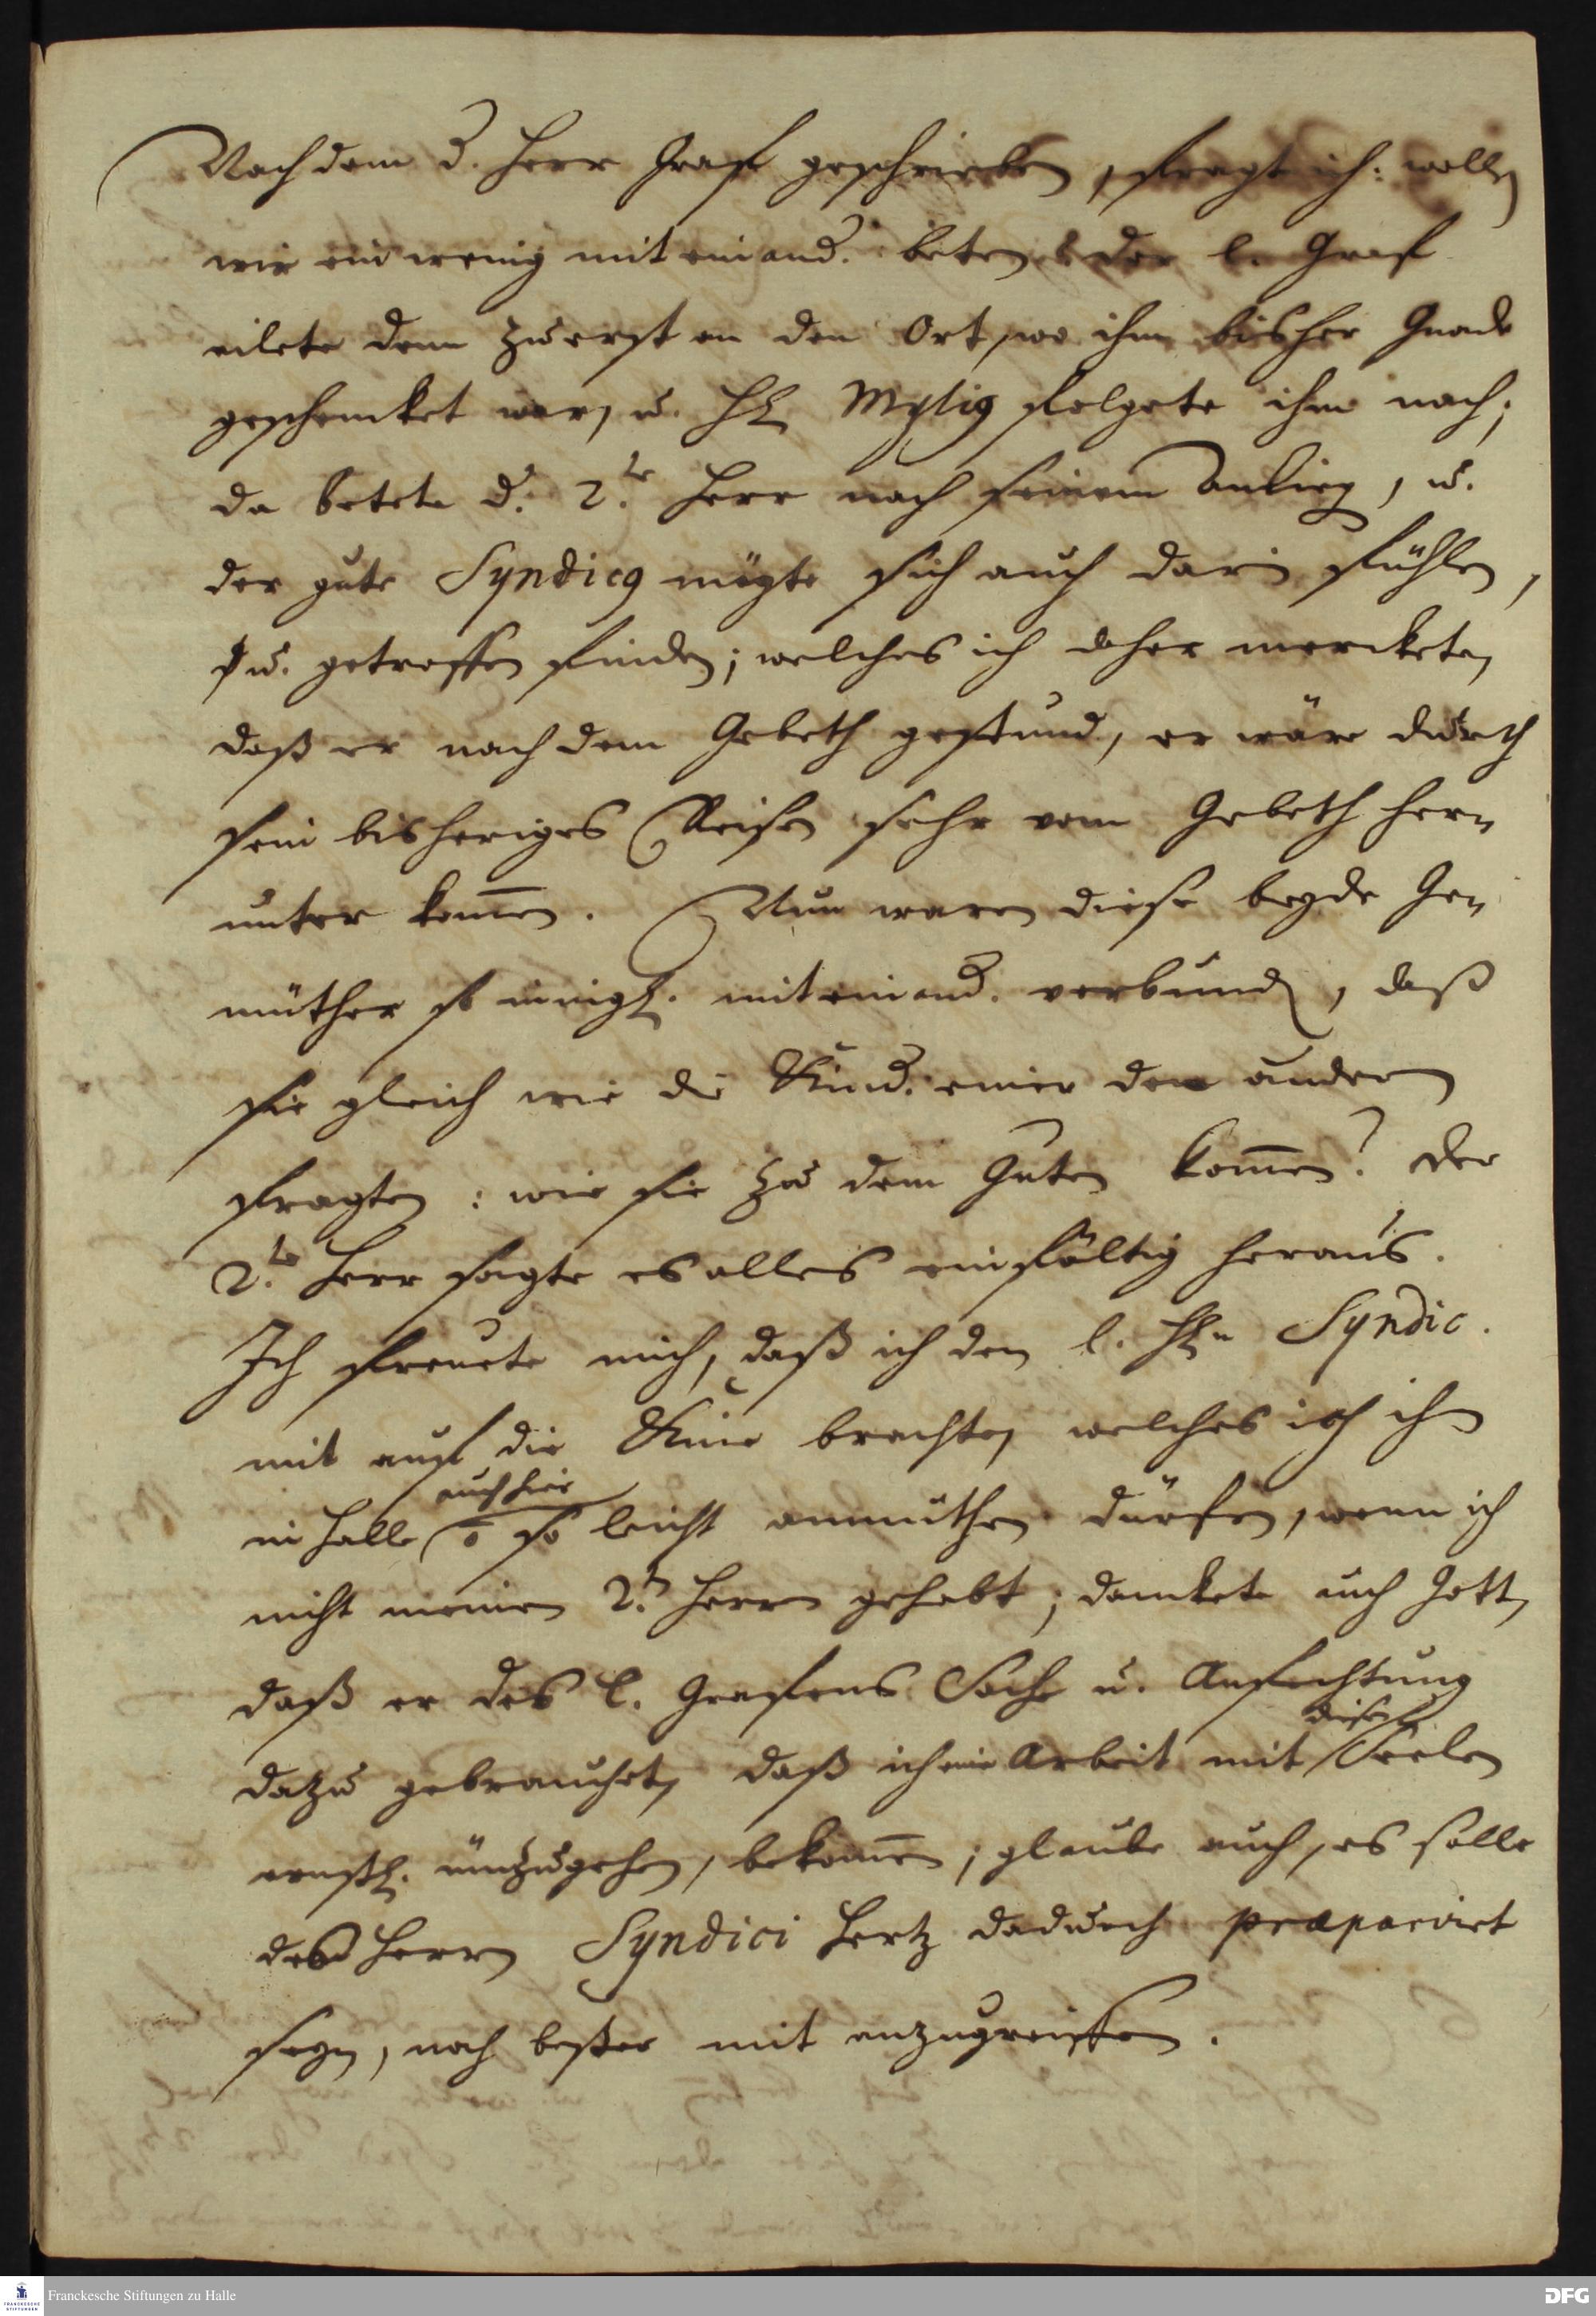 Nach dem d. Herr Graf geschrieben, fragt ich: wollen
wir ein wenig mit einand. beten? der l. Graf
eilete denn zuerst an den Ort, wo ihm bisher Gnade
geschencket war, u. H. Mylig folgete ihm nach;
da betete d. 2.te Herr nach seinem Anlieg, u.
der gute Syndicg mögte sich auch darin fühlen,
u. getroffen finden; welches ich daher merckete,
daß er nach dem Gebeth gestund, er wäre durch
sein bisheriges Reisen sehr vom Gebeth her-
unter kom̅en. Nun waren diese beyde Ge-
müther so innigl. mit einand. verbunden, daß
sie gleich wie die Kind. einer den andern
fragten: wie sie zu dem Guten kom̅en? Der
2.te Herr sagte es alles einfältig heraus.
Ich freuete mich, daß ich den l. H.n Syndic.
mit auf die Knie brachte, welches ich ihm
auch hier
in Halle so leicht anmuthen dürfen, wenn ich
nicht meinen 2.n Herrn gehabt; danckete auch Gott,
daß er des l. Grafens Sache u. Anfechtung
diesen
dazu gebrauchet, daß ich eine Arbeit mit Seelen
ernstl. umzugehen, bekom̅en; glaube auch, es solle
des Herrn Syndici Hertz dadurch præparirt
seyn, noch beßer mit anzugreiffen.
Franckesche Stiftungen zu Halle
DFG